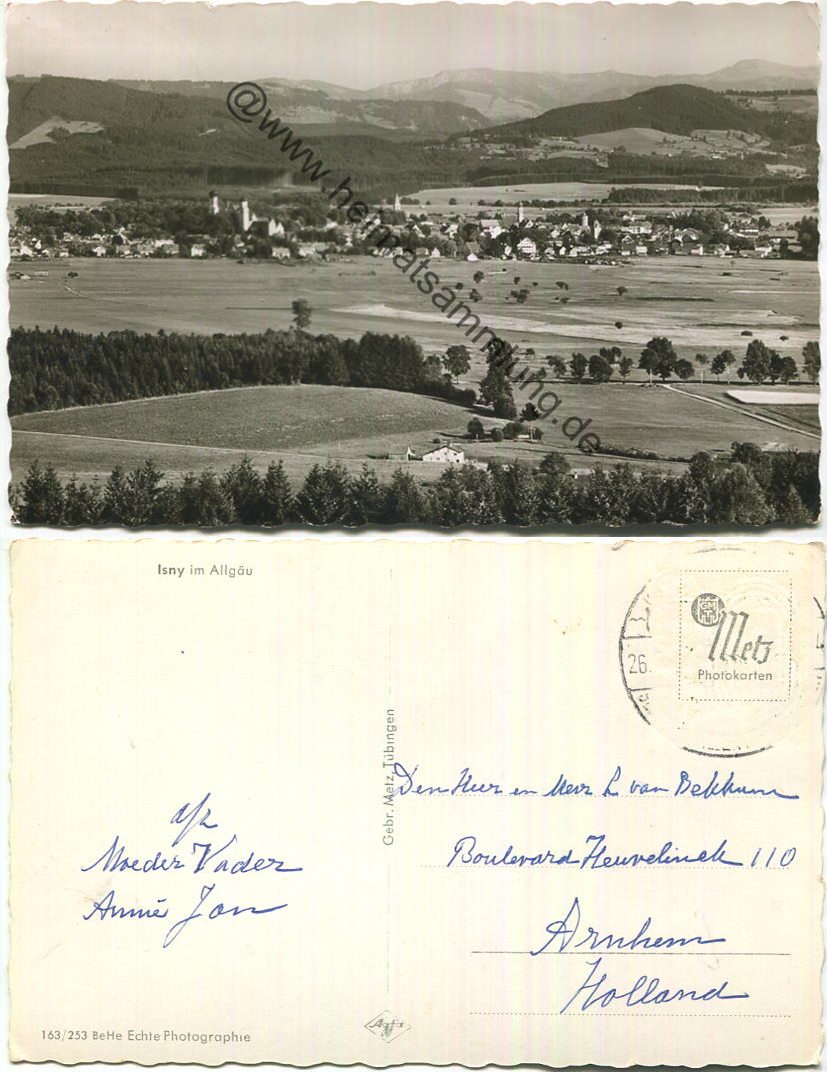 @www.heimatsammlung.de
Isny im Allgäu
GM
T
Metz
Photokarten
26.
Gebr. Metz, Tübingen
Den Heer en Mevr L van Bekkum
Boulevard Heuvelinck 110
Arnhem
Holland
afz
Moeder Vader
Annie Jan
163/253 BeHe Echte Photographie
Agfa